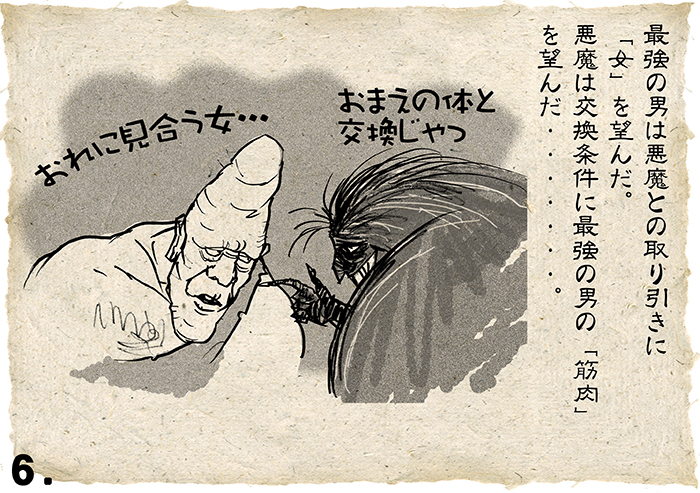 最強の男は悪魔との取り引きに
「女」を望んだ。
悪魔は交換条件に最強の男の「筋肉」
を望んだ・・・・・・・。
おまえの体と
交換じゃっ
おれに見合う女…
6.